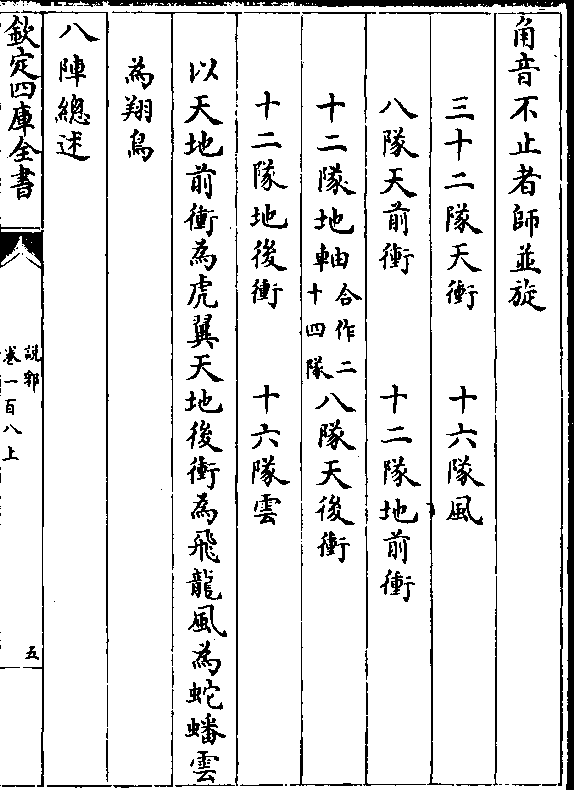 角音不止者師並旋
三十二隊天衝 十六隊風
八隊天前衝 十二隊地前衝
十二隊地軸合作二十四隊 八隊天後衝
十二隊地後衝 十六隊雲
以天地前衝為虎翼天地後衝為飛龍風為蛇蟠雲
為翔鳥
八陣總述
欽定四庫全書 說郛 卷一百八上 五